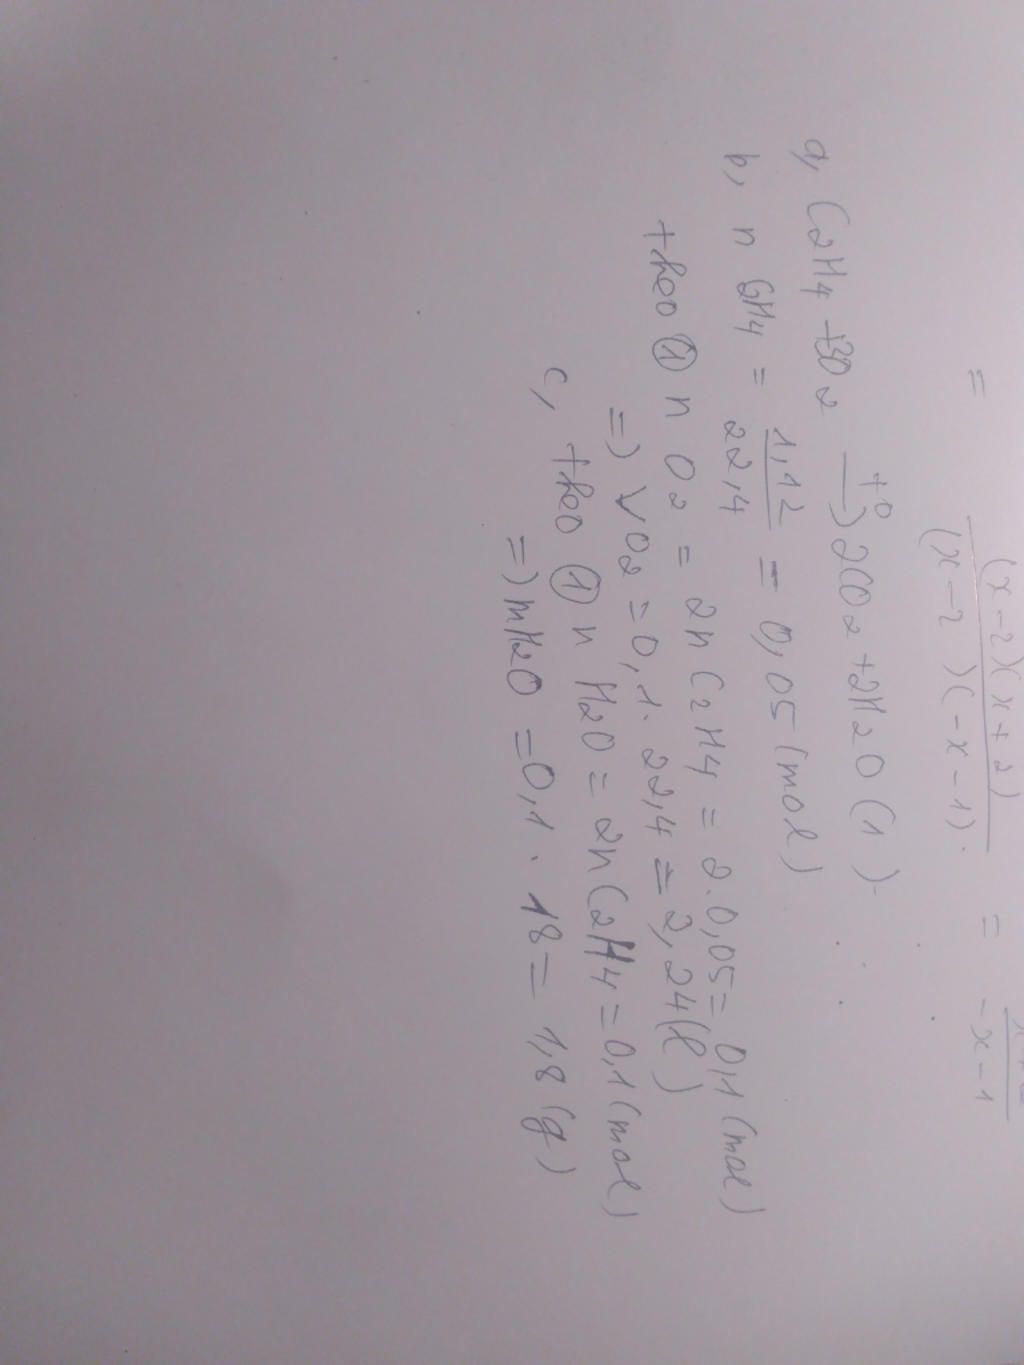 = (x-2)(x+2) / (x-2)(-x-1). = / -x-1
a, C2H4 + 3O2 —t0—) 2CO2 + 2H2O (1)
b, n C2H4 = 1,12 / 22,4 = 0,05 (mol)
theo ① n O2 = 2n C2H4 = 2.0,05 = 0,1 (mol)
=) VO2 = 0,1. 22,4 = 2,24 (l)
c, theo ① n H2O = 2n C2H4 = 0,1 (mol)
=) mH2O = 0,1 . 18 = 1,8 (g)